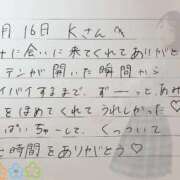 月16日 Kさんへ
に会いに来てくれてありがと
テンが開いた瞬間から
バイバイするまで、ずーっと、あみ
をほめてくれてうれしかった♡
ぱいちゅーして、くっついて
な時間をありがとう♡